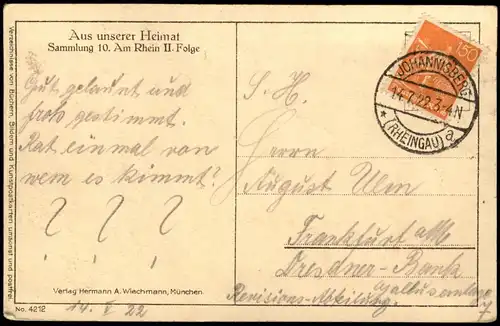 Aus unserer Heimat
Sammlung 10. Am Rhein II. Folge
Gut gelaunt und
froh gestimmt.
Rat einmal von
wem es kimmt?
? ? ?
Verlag Hermann A. Wiechmann, München.
14. V 22
No. 4212
Verzeichnisse von Büchern, Bildern und Kunstpostkarten umsonst und postfrei.
150
JOHANNISBERG
14.7.22.3-4N
* (RHEINGAU) a
S. H.
Herrn
August Ulm
Frankfurt a/M
Dresdner-Bank
Revisions-Abteilung.
7